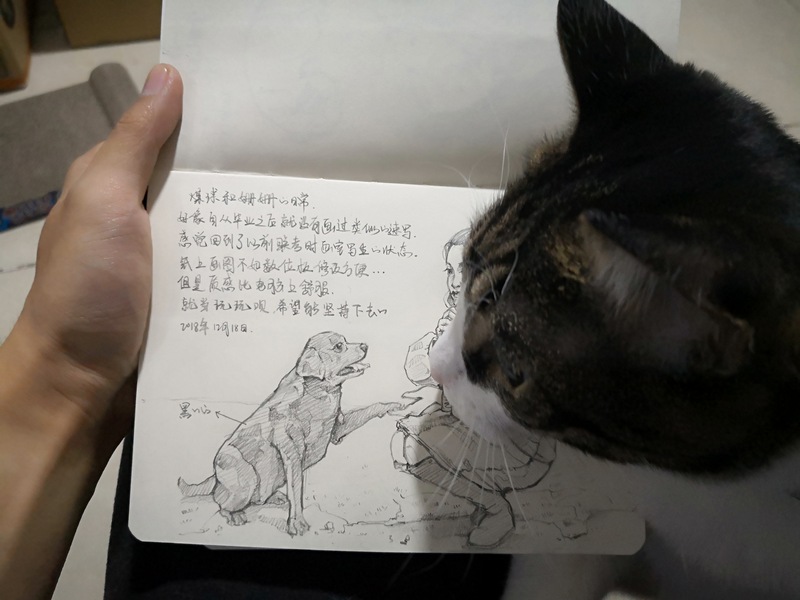 煤球和姗姗的日常.
好像自从毕业之后就没有画过类似的速写.
感觉回到了以前联考时画速写的状态.
纸上画图不如数位板修改方便...
但是质感比电脑上舒服.
就当玩玩呗 希望能坚持下去
2018年12月18日.
黑的